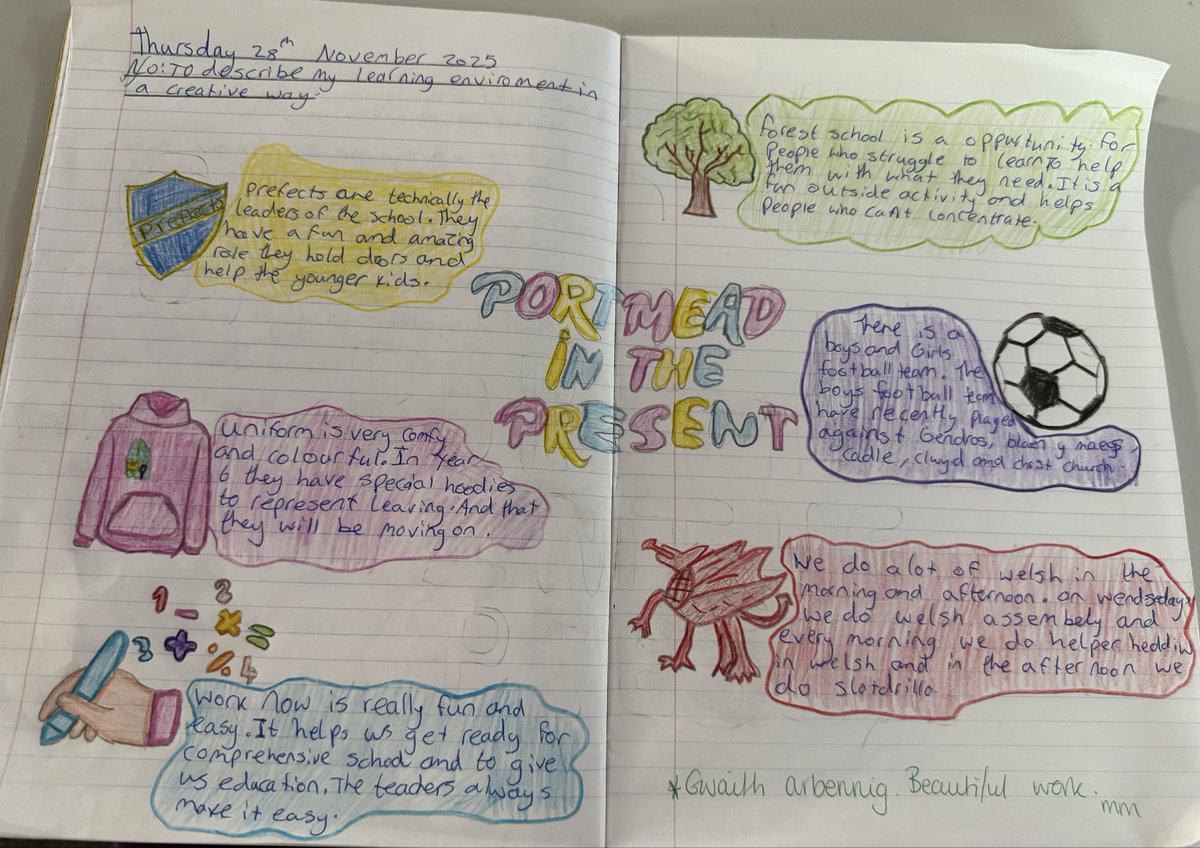 Thursday 28th November 2025
NO: TO describe my learning enviroment in
a creative way.
Prefects
Prefects are technically the
leaders of the school. They
have a fun and amazing
role they hold doors and
help the younger kids.
Uniform is very comfy
and colourful. In Year
6 they have special hoodies
to represent leaving. And that
they will be moving on.
1 - 2
3 + × =
÷ 4
Work now is really fun and
easy. It helps us get ready for
comprehensive school and to give
us education. The teachers always
make it easy.
PORTMEAD
IN THE
PRESENT
Forest school is a oppurtunity for
People who struggle to learn To help
them with what they need. It is a
fun outside activity and helps
People who can't concentrate.
There is a
boys and Girls
football team. The
boys football team
have recently played
against Gendros, blaen y maes,
cadle, clwyd and christ church.
We do alot of welsh in the
morning and afternoon. on wendsedays
we do welsh assembely and
every morning we do helper heddiw
in welsh and in the afternoon we
do slotdrillo.
*Gwaith arbennig. Beautiful work.
mm